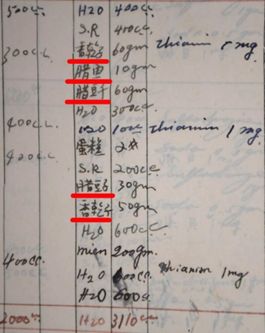 500cc. H2O 400cc
S.R 400cc
300cc. 香乾 60gm Thiamin 5 mg
腊 10gm
腊豆干 60gm
H2O 300cc
400cc. H2O 100cc Thiamin 1 mg
420cc. 蛋糕 2
S.R 200cc
腊 30gm
香乾 50gm
H2O 600cc
400cc. mien 200gm
H2O 600cc Thiamin 1mg
H2O 600cc
2000cc H2O 3110cc